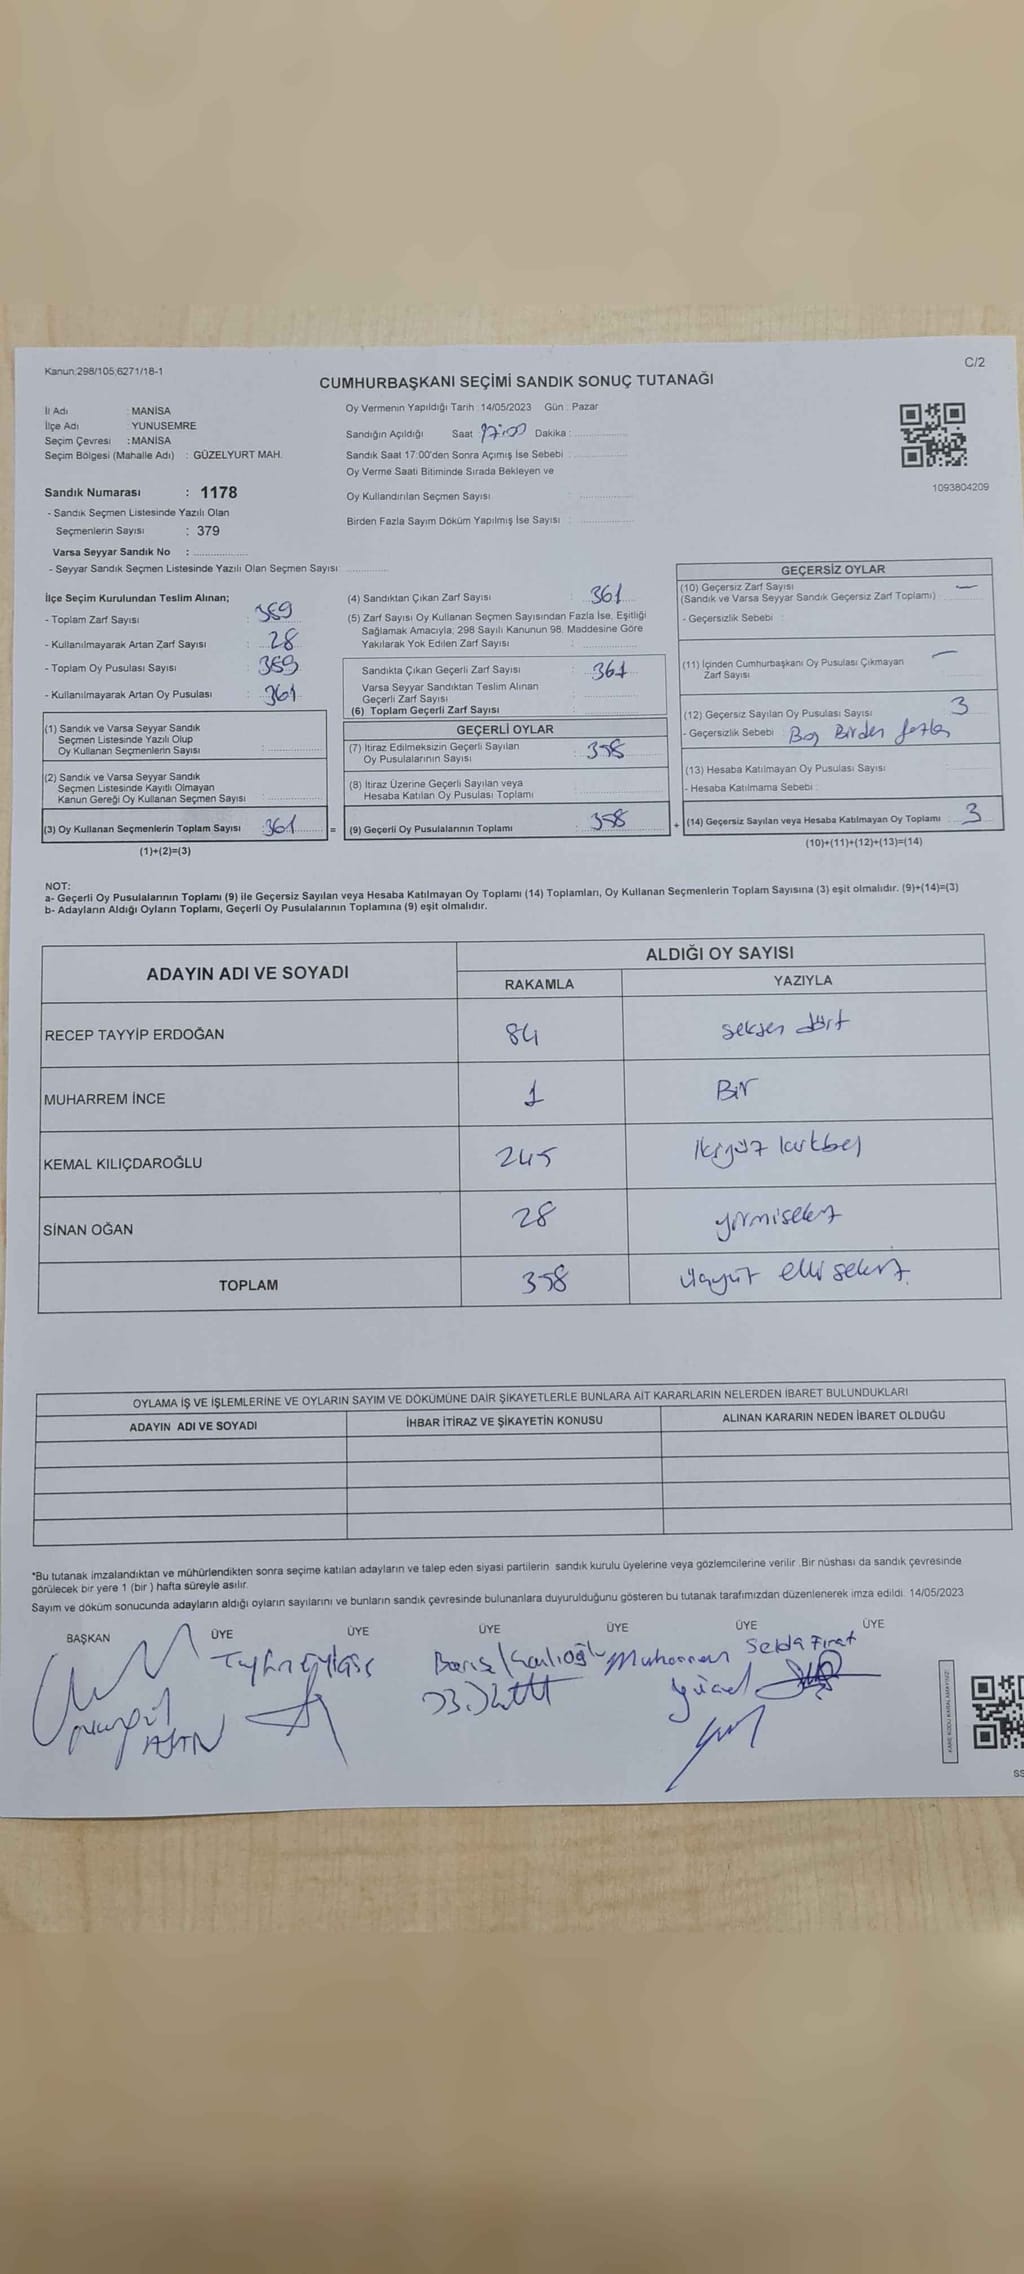 Kanun:298/105;6271/18-1
C/2
CUMHURBAŞKANI SEÇİMİ SANDIK SONUÇ TUTANAĞI
İl Adı : MANİSA
İlçe Adı : YUNUSEMRE
Seçim Çevresi : MANİSA
Seçim Bölgesi (Mahalle Adı) : GÜZELYURT MAH.
Oy Vermenin Yapıldığı Tarih : 14/05/2023 Gün : Pazar
Sandığın Açıldığı Saat : 17:00 Dakika :
Sandık Saat 17:00'den Sonra Açımış İse Sebebi :
Oy Verme Saati Bitiminde Sırada Bekleyen ve
Oy Kullandırılan Seçmen Sayısı :
Birden Fazla Sayım Döküm Yapılmış İse Sayısı :
1093804209
Sandık Numarası : 1178
- Sandık Seçmen Listesinde Yazılı Olan
Seçmenlerin Sayısı : 379
Varsa Seyyar Sandık No :
- Seyyar Sandık Seçmen Listesinde Yazılı Olan Seçmen Sayısı:
İlçe Seçim Kurulundan Teslim Alınan;
- Toplam Zarf Sayısı : 389
- Kullanılmayarak Artan Zarf Sayısı : 28
- Toplam Oy Pusulası Sayısı : 389
- Kullanılmayarak Artan Oy Pusulası : 361
(1) Sandık ve Varsa Seyyar Sandık
Seçmen Listesinde Yazılı Olup
Oy Kullanan Seçmenlerin Sayısı :
(2) Sandık ve Varsa Seyyar Sandık
Seçmen Listesinde Kayıtlı Olmayan
Kanun Gereği Oy Kullanan Seçmen Sayısı :
(3) Oy Kullanan Seçmenlerin Toplam Sayısı : 361
(1)+(2)=(3)
(4) Sandıktan Çıkan Zarf Sayısı : 361
(5) Zarf Sayısı Oy Kullanan Seçmen Sayısından Fazla İse, Eşitliği
Sağlamak Amacıyla, 298 Sayılı Kanunun 98. Maddesine Göre
Yakılarak Yok Edilen Zarf Sayısı :
Sandıkta Çıkan Geçerli Zarf Sayısı : 361
Varsa Seyyar Sandıktan Teslim Alınan
Geçerli Zarf Sayısı :
(6) Toplam Geçerli Zarf Sayısı :
GEÇERLİ OYLAR
(7) İtiraz Edilmeksizin Geçerli Sayılan
Oy Pusulalarının Sayısı : 358
(8) İtiraz Üzerine Geçerli Sayılan veya
Hesaba Katılan Oy Pusulası Toplamı :
= (9) Geçerli Oy Pusulalarının Toplamı : 358 +
GEÇERSİZ OYLAR
(10) Geçersiz Zarf Sayısı —
(Sandık ve Varsa Seyyar Sandık Geçersiz Zarf Toplamı) :
- Geçersizlik Sebebi :
(11) İçinden Cumhurbaşkanı Oy Pusulası Çıkmayan —
Zarf Sayısı :
(12) Geçersiz Sayılan Oy Pusulası Sayısı : 3
- Geçersizlik Sebebi : Boş Birden fazla
(13) Hesaba Katılmayan Oy Pusulası Sayısı :
- Hesaba Katılmama Sebebi :
(14) Geçersiz Sayılan veya Hesaba Katılmayan Oy Toplamı : 3
(10)+(11)+(12)+(13)=(14)
NOT:
a- Geçerli Oy Pusulalarının Toplamı (9) ile Geçersiz Sayılan veya Hesaba Katılmayan Oy Toplamı (14) Toplamları, Oy Kullanan Seçmenlerin Toplam Sayısına (3) eşit olmalıdır. (9)+(14)=(3)
b- Adayların Aldığı Oyların Toplamı, Geçerli Oy Pusulalarının Toplamına (9) eşit olmalıdır.
ADAYIN ADI VE SOYADI
ALDIĞI OY SAYISI
RAKAMLA YAZIYLA
RECEP TAYYİP ERDOĞAN 84 seksen dört
MUHARREM İNCE 1 Bir
KEMAL KILIÇDAROĞLU 245 İkiyüz kırkbeş
SİNAN OĞAN 28 yirmisekiz
TOPLAM 358 üçyüz elli sekiz
OYLAMA İŞ VE İŞLEMLERİNE VE OYLARIN SAYIM VE DÖKÜMÜNE DAİR ŞİKAYETLERLE BUNLARA AİT KARARLARIN NELERDEN İBARET BULUNDUKLARI
ADAYIN ADI VE SOYADI İHBAR İTİRAZ VE ŞİKAYETİN KONUSU ALINAN KARARIN NEDEN İBARET OLDUĞU
*Bu tutanak imzalandıktan ve mühürlendikten sonra seçime katılan adayların ve talep eden siyasi partilerin sandık kurulu üyelerine veya gözlemcilerine verilir. Bir nüshası da sandık çevresinde
görülecek bir yere 1 (bir ) hafta süreyle asılır.
Sayım ve döküm sonucunda adayların aldığı oyların sayılarını ve bunların sandık çevresinde bulunanlara duyurulduğunu gösteren bu tutanak tarafımızdan düzenlenerek imza edildi. 14/05/2023
BAŞKAN ÜYE ÜYE ÜYE ÜYE ÜYE ÜYE
Selda Fırat
Muharrem
Yücel
KARE KODU KARALAMAYINIZ
SS